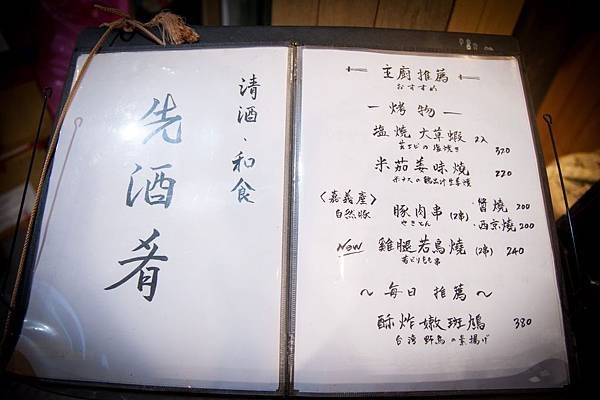 清酒、和食
先酒肴
主廚推薦
おすすめ
一 烤物 一
塩燒 大草蝦 2入 320
の塩焼き
米茄姜味燒 220
米ナスの
〈嘉義產〉
自然豚
豚肉串(2串)
やきとん
・醬燒 200
・西京燒 200
NEW 雞腿若鳥燒 (2串) 240
若どりもも串
～ 每日 推薦 ～
酥炸嫩斑鳩 380
台湾 野鳥の素揚げ